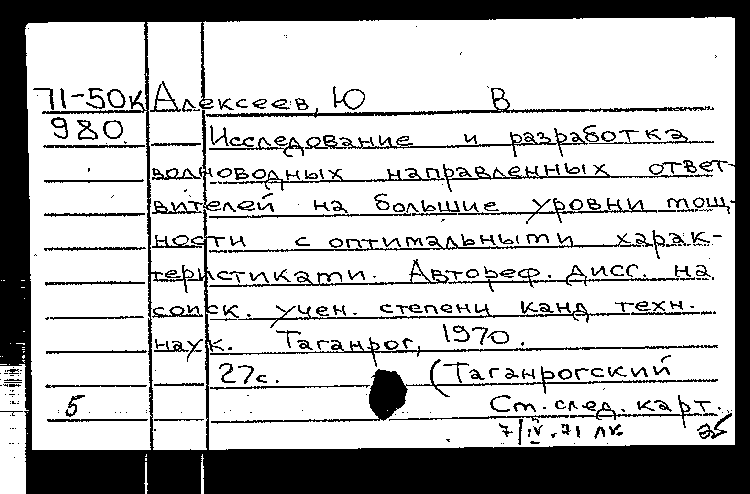 71-50к Алексеев, Ю В
980 Исследование и разработка
волноводных направленных ответ-
вителей на большие уровни мощ-
ности с оптимальными харак-
теристиками. Автореф. дисс. на
соиск. учен. степени канд техн.
наук. Таганрог, 1970.
27с. (Таганрогский
5 Ст. след. карт.
7/IV.71 лк.